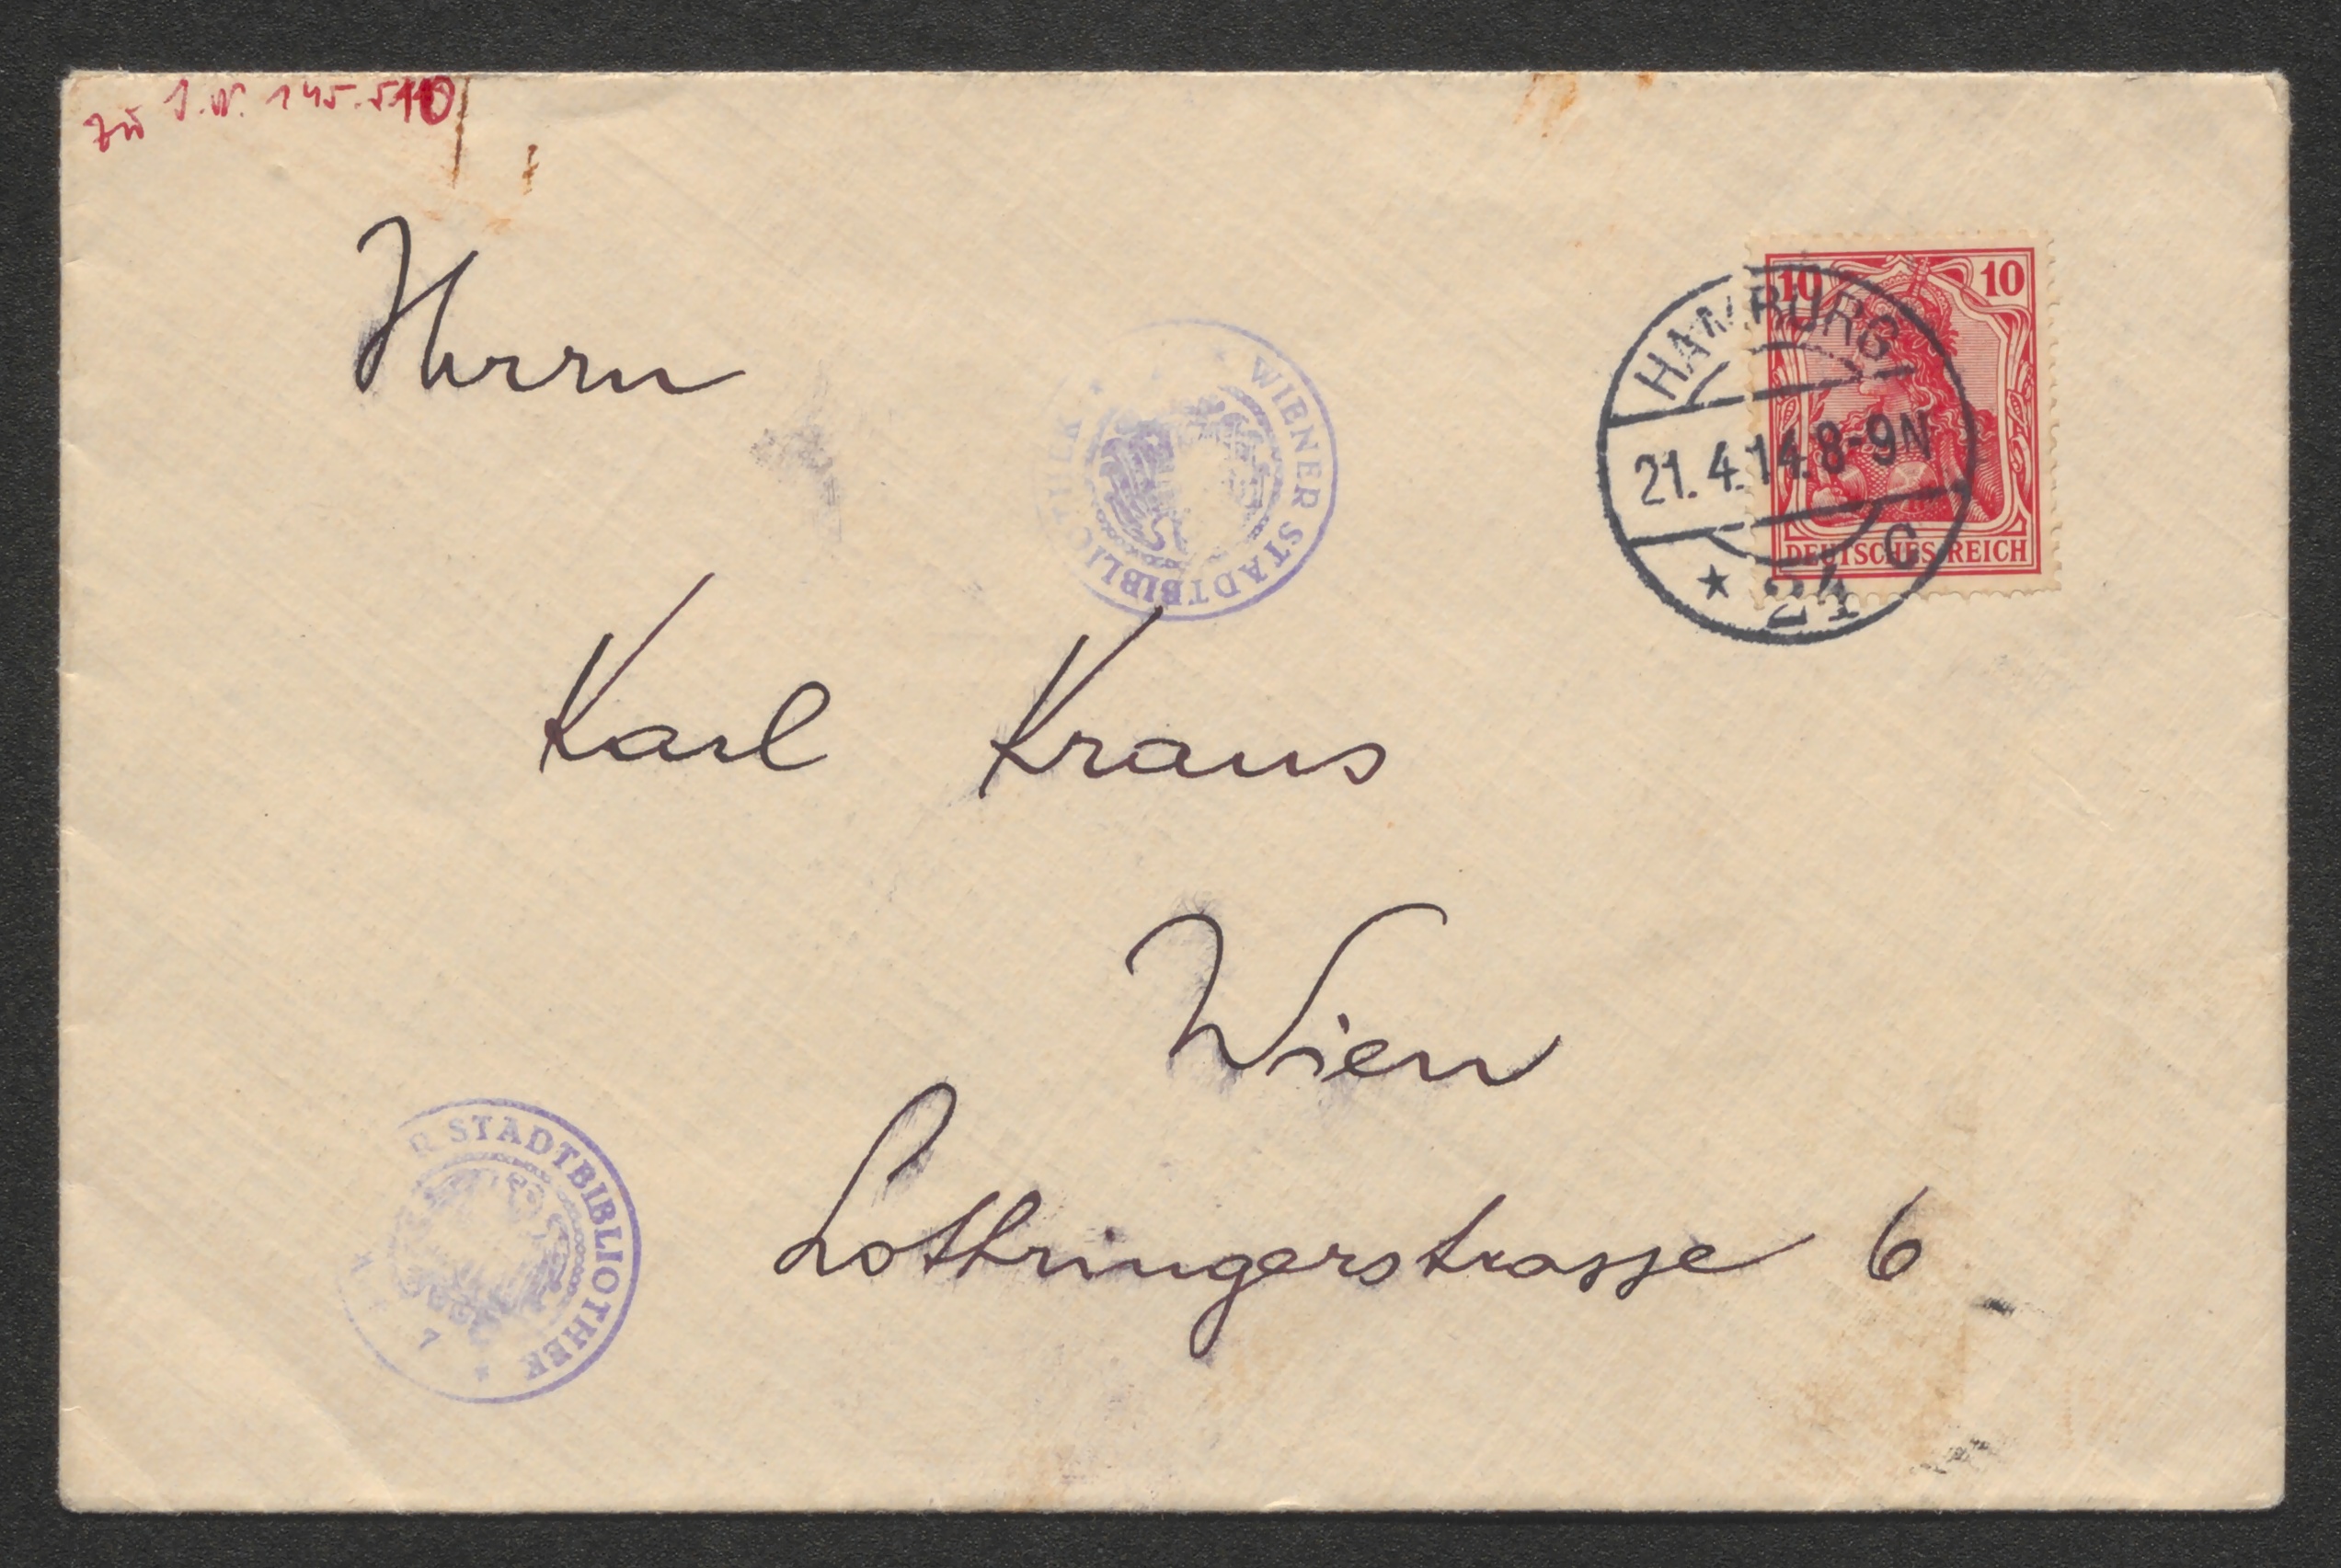 zu I.N. 145.510
10 10
HAMBURG
21.4.14.8-9N
DEUTSCHES REICH
C
* 24
Herrn
WIENER STADTBIBLIOTHEK
Karl Kraus
Wien
Lothringerstrasse 6
R STADTBIBLIOTHEK